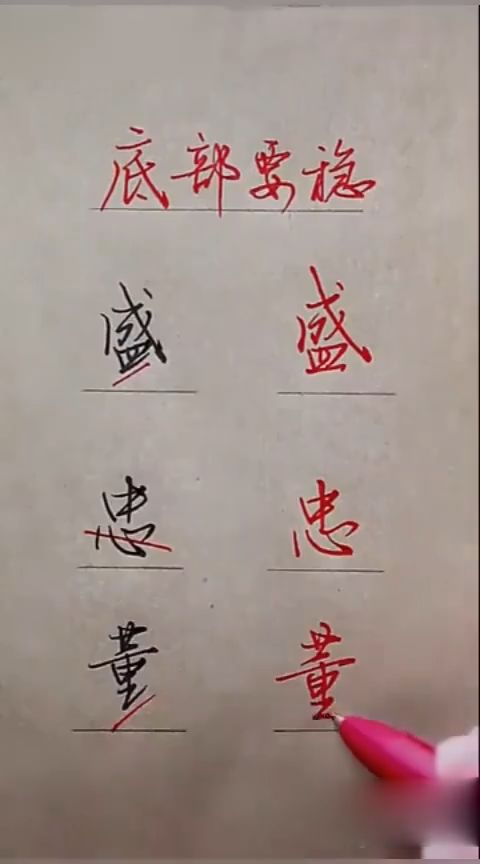 底部要稳
盛 盛
忠 忠
董 董